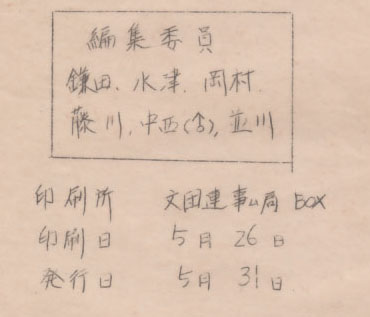 編集委員
鎌田、水津、岡村、
藤川、中西(吉)、並川
印刷所 文団連事ム局 BOX
印刷日 5月 26日
発行日 5月 31日